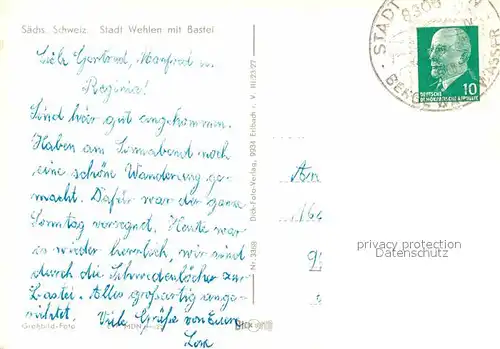 Sächs. Schweiz. Stadt Wehlen mit Bastei
Liebe Gertrud, Manfred u.
Regina!
Sind hier gut angekommen.
Haben am Sonnabend noch
eine schöne Wanderung ge-
macht. Dafür war der ganze
Sonntag verregnet. Heute war
es wieder herrlich, wir sind
durch die Schwedenlöcher zur
Bastei. Alles großartig einge-
richtet. Viele Grüße von Euern
Großbild-Foto
Dick-Foto-Verlag, 9934 Erlbach i. V.
Nr. 3308
8305
STADT
BERGE WALD WASSER
DEUTSCHE
DEMOKRATISCHE REPUBLIK
10
An
privacy protection
Datenschutz